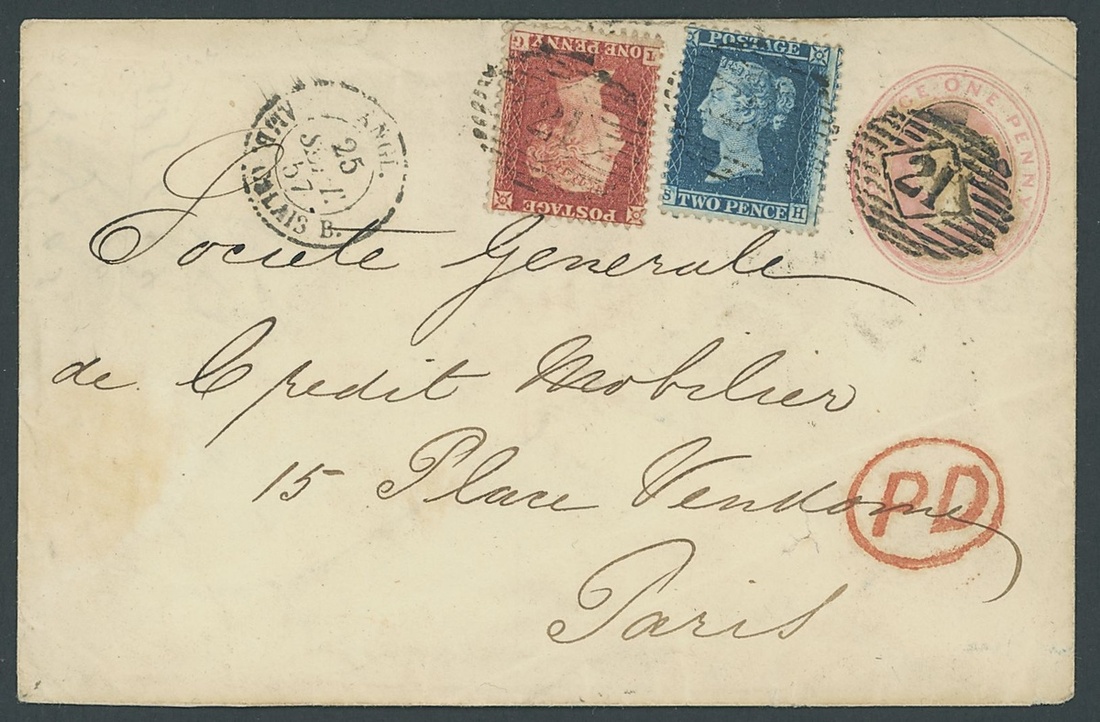 TONE PENNYG
POSTAGE
POSTAGE
S TWO PENCE H
CE ONE PENNY
21
ANGL.
25
SEPT
57
AMB. CALAIS B.
Societe Generale
de Credit Mobilier
15 Place Vendome
PD
Paris